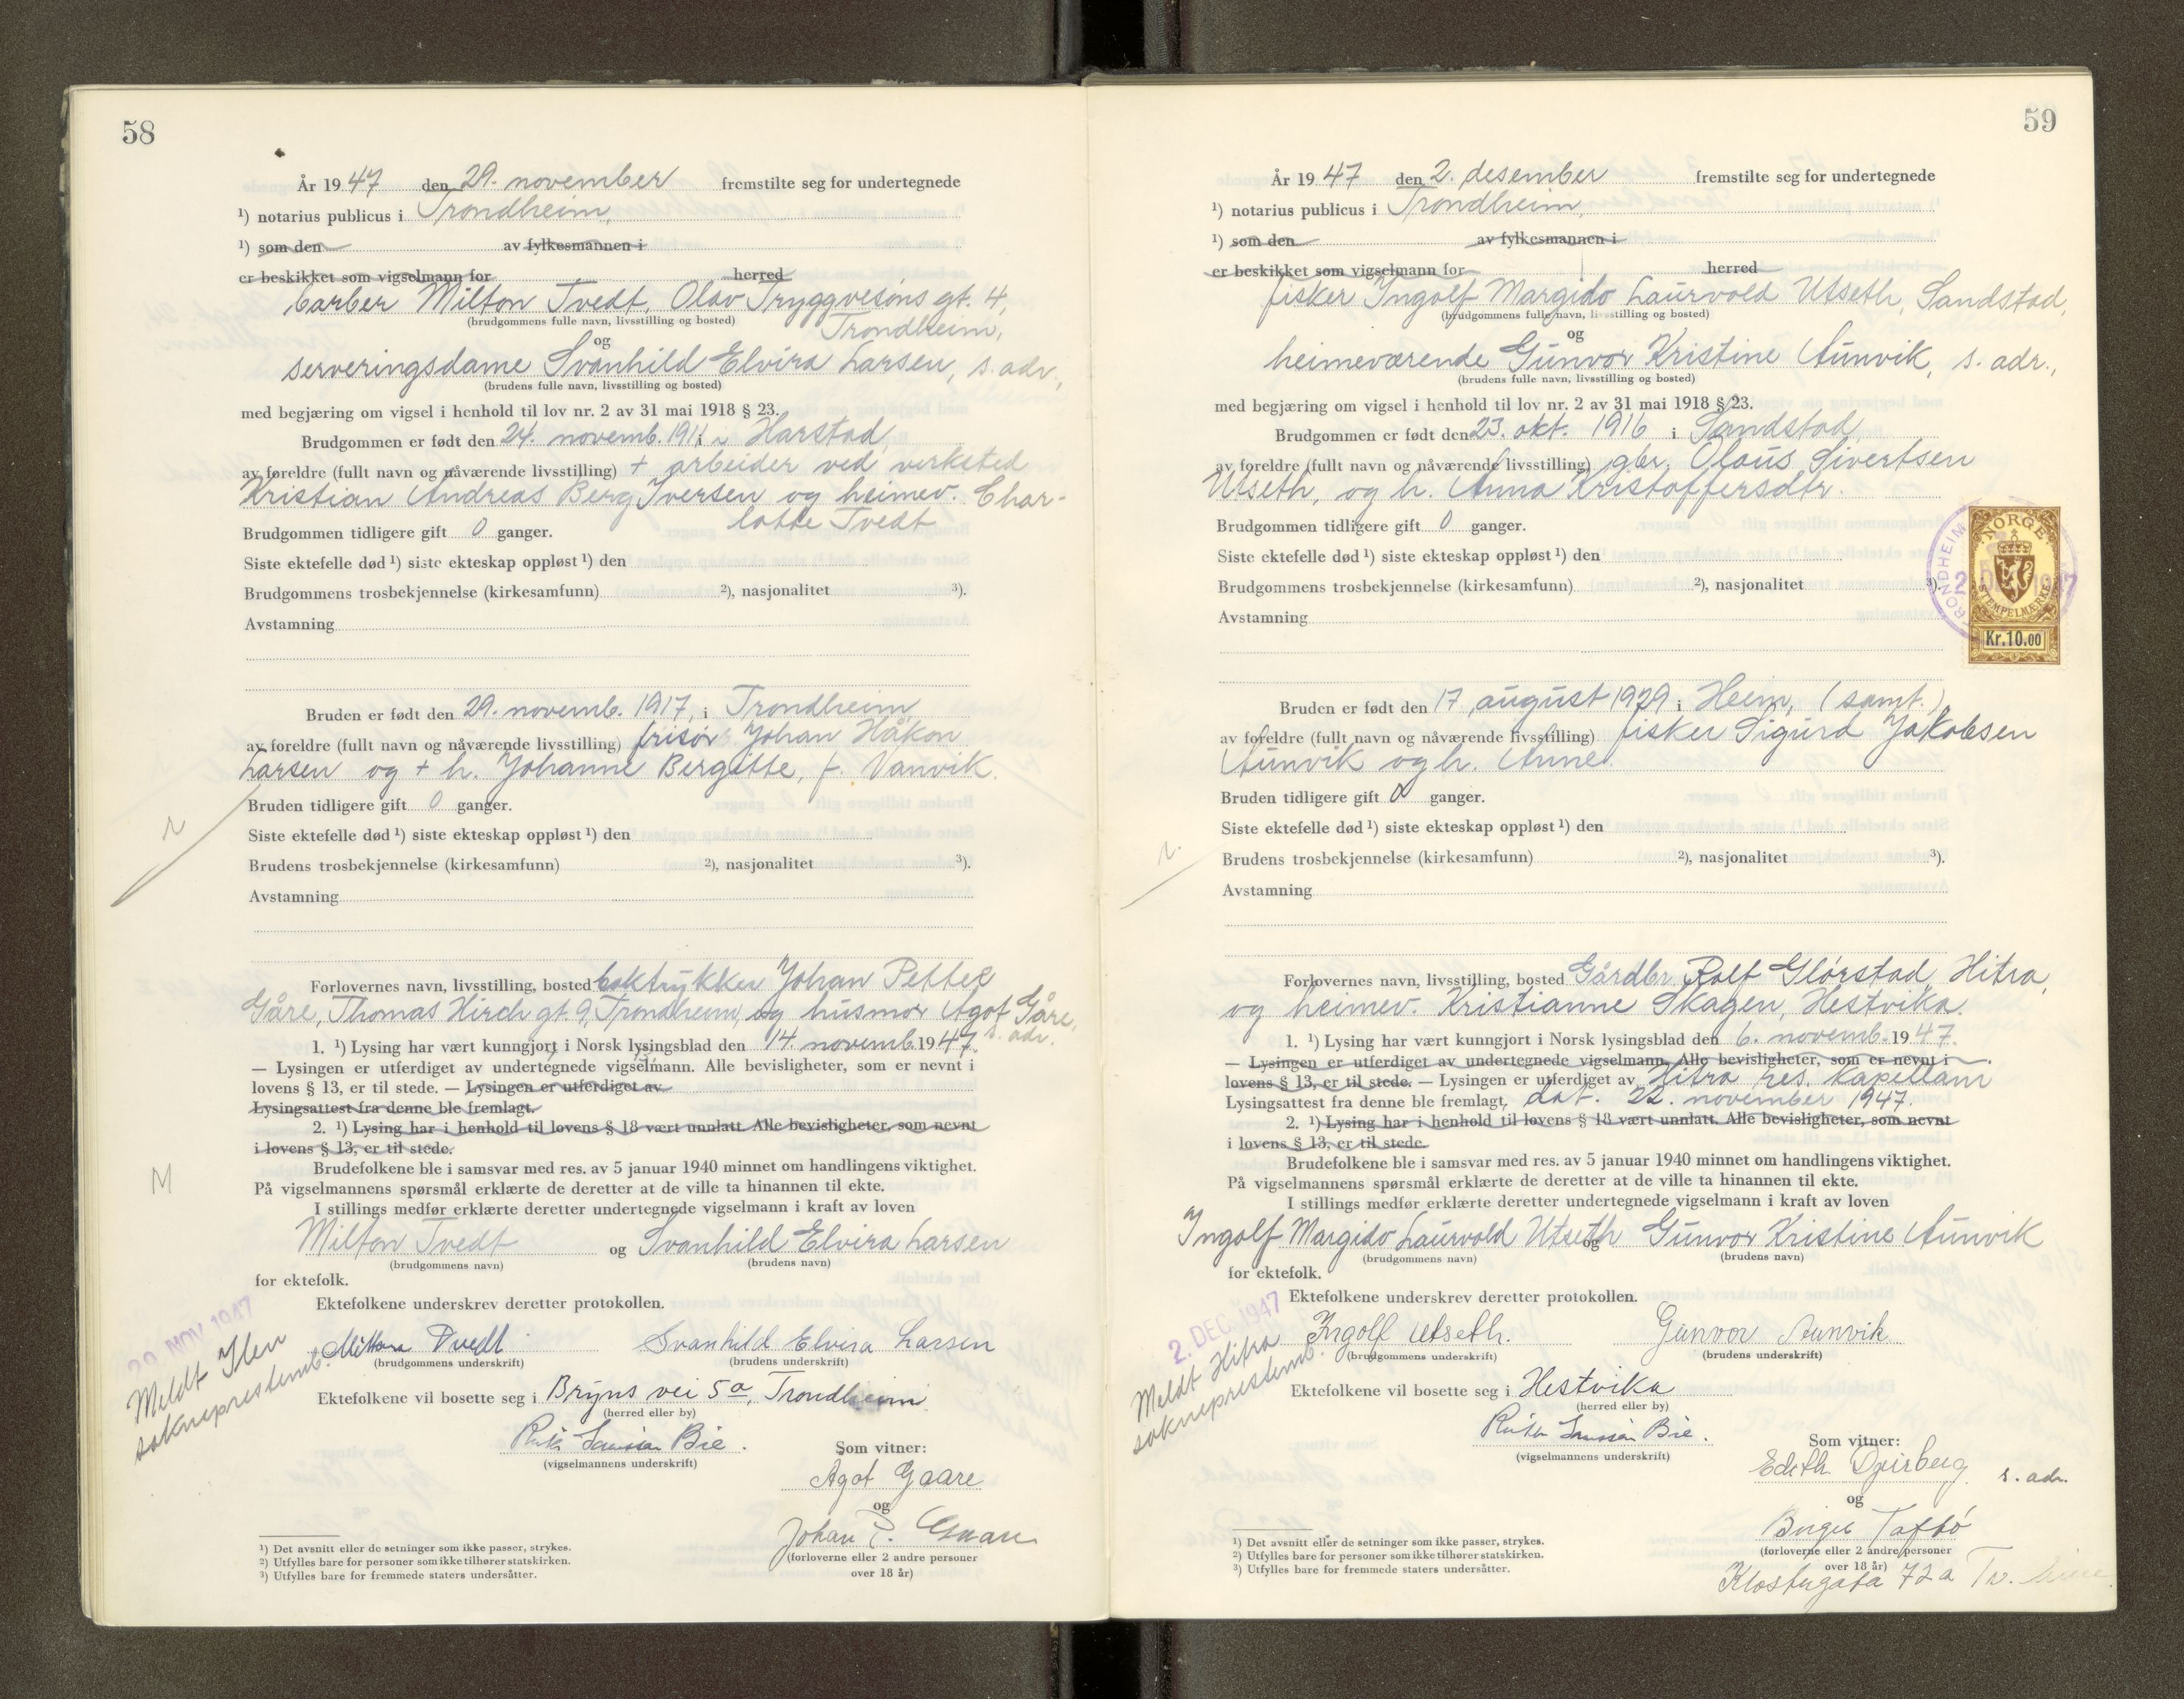 58
År 19 47 den 29. november fremstilte seg for undertegnede
¹) notarius publicus i Trondheim,
¹) som den av fylkesmannen i
er beskikket som vigselmann for herred
barber Milton Tvedt, Olav Tryggvesøns gt. 4,
(brudgommens fulle navn, livsstilling og bosted)
Trondheim,
og
serveringsdame Svanhild Elvira Larsen, s. adr.,
(brudens fulle navn, livsstilling og bosted)
med begjæring om vigsel i henhold til lov nr. 2 av 31 mai 1918 § 23.
Brudgommen er født den 24. novemb. 1911 i Harstad,
av foreldre (fullt navn og nåværende livsstilling) + arbeider ved verksted
Kristian Andreas Berg Iversen og heimev. Char-
lotte Tvedt
Brudgommen tidligere gift 0 ganger.
Siste ektefelle død ¹) siste ekteskap oppløst ¹) den
Brudgommens trosbekjennelse (kirkesamfunn) ²), nasjonalitet ³).
Avstamning
Bruden er født den 29. novemb. 1917, i Trondheim
av foreldre (fullt navn og nåværende livsstilling) frisør Johan Håkon
Larsen og + h. Johanne Bergitte, f. Vanvik.
Bruden tidligere gift 0 ganger.
Siste ektefelle død ¹) siste ekteskap oppløst ¹) den
Brudens trosbekjennelse (kirkesamfunn) ²), nasjonalitet ³).
Avstamning
Forlovernes navn, livsstilling, bosted boktrykker Johan Petter
Gåre, Thomas Hirch gt. 9, Trondheim, og husmor Agot Gåre,
s. adr.
1. ¹) Lysing har vært kunngjort i Norsk lysingsblad den 14. novemb. 1947.
— Lysingen er utferdiget av undertegnede vigselmann. Alle bevisligheter, som er nevnt i
lovens § 13, er til stede. — Lysingen er utferdiget av
Lysingsattest fra denne ble fremlagt.
2. ¹) Lysing har i henhold til lovens § 18 vært unnlatt. Alle bevisligheter, som nevnt
i lovens § 13, er til stede.
M
Brudefolkene ble i samsvar med res. av 5 januar 1940 minnet om handlingens viktighet.
På vigselmannens spørsmål erklærte de deretter at de ville ta hinannen til ekte.
I stillings medfør erklærte deretter undertegnede vigselmann i kraft av loven
Milton Tvedt og Svanhild Elvira Larsen
(brudgommens navn) (brudens navn)
for ektefolk.
Ektefolkene underskrev deretter protokollen.
29 NOV 1947
Meldt Ilen
sokneprestemb.
Milton Tvedt Svanhild Elvira Larsen
(brudgommens underskrift) (brudens underskrift)
Ektefolkene vil bosette seg i Bryns vei 5a, Trondheim
(herred eller by)
Bie.
(vigselmannens underskrift)
Som vitner:
Agot Gaare
og
Johan P. Gaare
(forloverne eller 2 andre personer
over 18 år)
¹) Det avsnitt eller de setninger som ikke passer, strykes.
²) Utfylles bare for personer som ikke tilhører statskirken.
³) Utfylles bare for fremmede staters undersåtter.
59
År 19 47 den 2. desember fremstilte seg for undertegnede
¹) notarius publicus i Trondheim,
¹) som den av fylkesmannen i
er beskikket som vigselmann for herred
fisker Ingolf Margido Laurvold Utseth, Sandstad,
(brudgommens fulle navn, livsstilling og bosted)
og
heimeværende Gunvor Kristine Aunvik, s. adr.,
(brudens fulle navn, livsstilling og bosted)
med begjæring om vigsel i henhold til lov nr. 2 av 31 mai 1918 § 23.
Brudgommen er født den 23. okt. 1916 i Sandstad,
av foreldre (fullt navn og nåværende livsstilling) gbr. Olaus Sivertsen
Utseth, og h. Anna Kristoffersdtr.
Brudgommen tidligere gift 0 ganger.
Siste ektefelle død ¹) siste ekteskap oppløst ¹) den
Brudgommens trosbekjennelse (kirkesamfunn) ²), nasjonalitet ³).
Avstamning
TRONDHEIM
NORGE
2 1947
STEMPELMÆRKE
Kr.10.00
Bruden er født den 17. august 1929 i Heim, (samt.)
av foreldre (fullt navn og nåværende livsstilling) fisker Sigurd Jakobsen
Aunvik og h. Anne.
Bruden tidligere gift 0 ganger.
Siste ektefelle død ¹) siste ekteskap oppløst ¹) den
Brudens trosbekjennelse (kirkesamfunn) ²), nasjonalitet ³).
Avstamning
Forlovernes navn, livsstilling, bosted Gårdbr. Rolf Glørstad, Hitra,
og heimev. Kristianne Skagen, Hestvika.
1. ¹) Lysing har vært kunngjort i Norsk lysingsblad den 6. novemb. 1947.
— Lysingen er utferdiget av undertegnede vigselmann. Alle bevisligheter, som er nevnt i
lovens § 13, er til stede. — Lysingen er utferdiget av Hitra res. kapellani
Lysingsattest fra denne ble fremlagt, dat. 22. november 1947.
2. ¹) Lysing har i henhold til lovens § 18 vært unnlatt. Alle bevisligheter, som nevnt
i lovens § 13, er til stede.
Brudefolkene ble i samsvar med res. av 5 januar 1940 minnet om handlingens viktighet.
På vigselmannens spørsmål erklærte de deretter at de ville ta hinannen til ekte.
I stillings medfør erklærte deretter undertegnede vigselmann i kraft av loven
Ingolf Margido Laurvold Utseth og Gunvor Kristine Aunvik
(brudgommens navn) (brudens navn)
for ektefolk.
Ektefolkene underskrev deretter protokollen.
2. DEC. 1947
Meldt Hitra
sokneprestemb.
Ingolf Utseth. Gunvor Aunvik
(brudgommens underskrift) (brudens underskrift)
Ektefolkene vil bosette seg i Hestvika
(herred eller by)
Bie.
(vigselmannens underskrift)
Som vitner:
Edith s. adr.
og
Taftø
(forloverne eller 2 andre personer
over 18 år)
Klostergata 72 a
¹) Det avsnitt eller de setninger som ikke passer, strykes.
²) Utfylles bare for personer som ikke tilhører statskirken.
³) Utfylles bare for fremmede staters undersåtter.